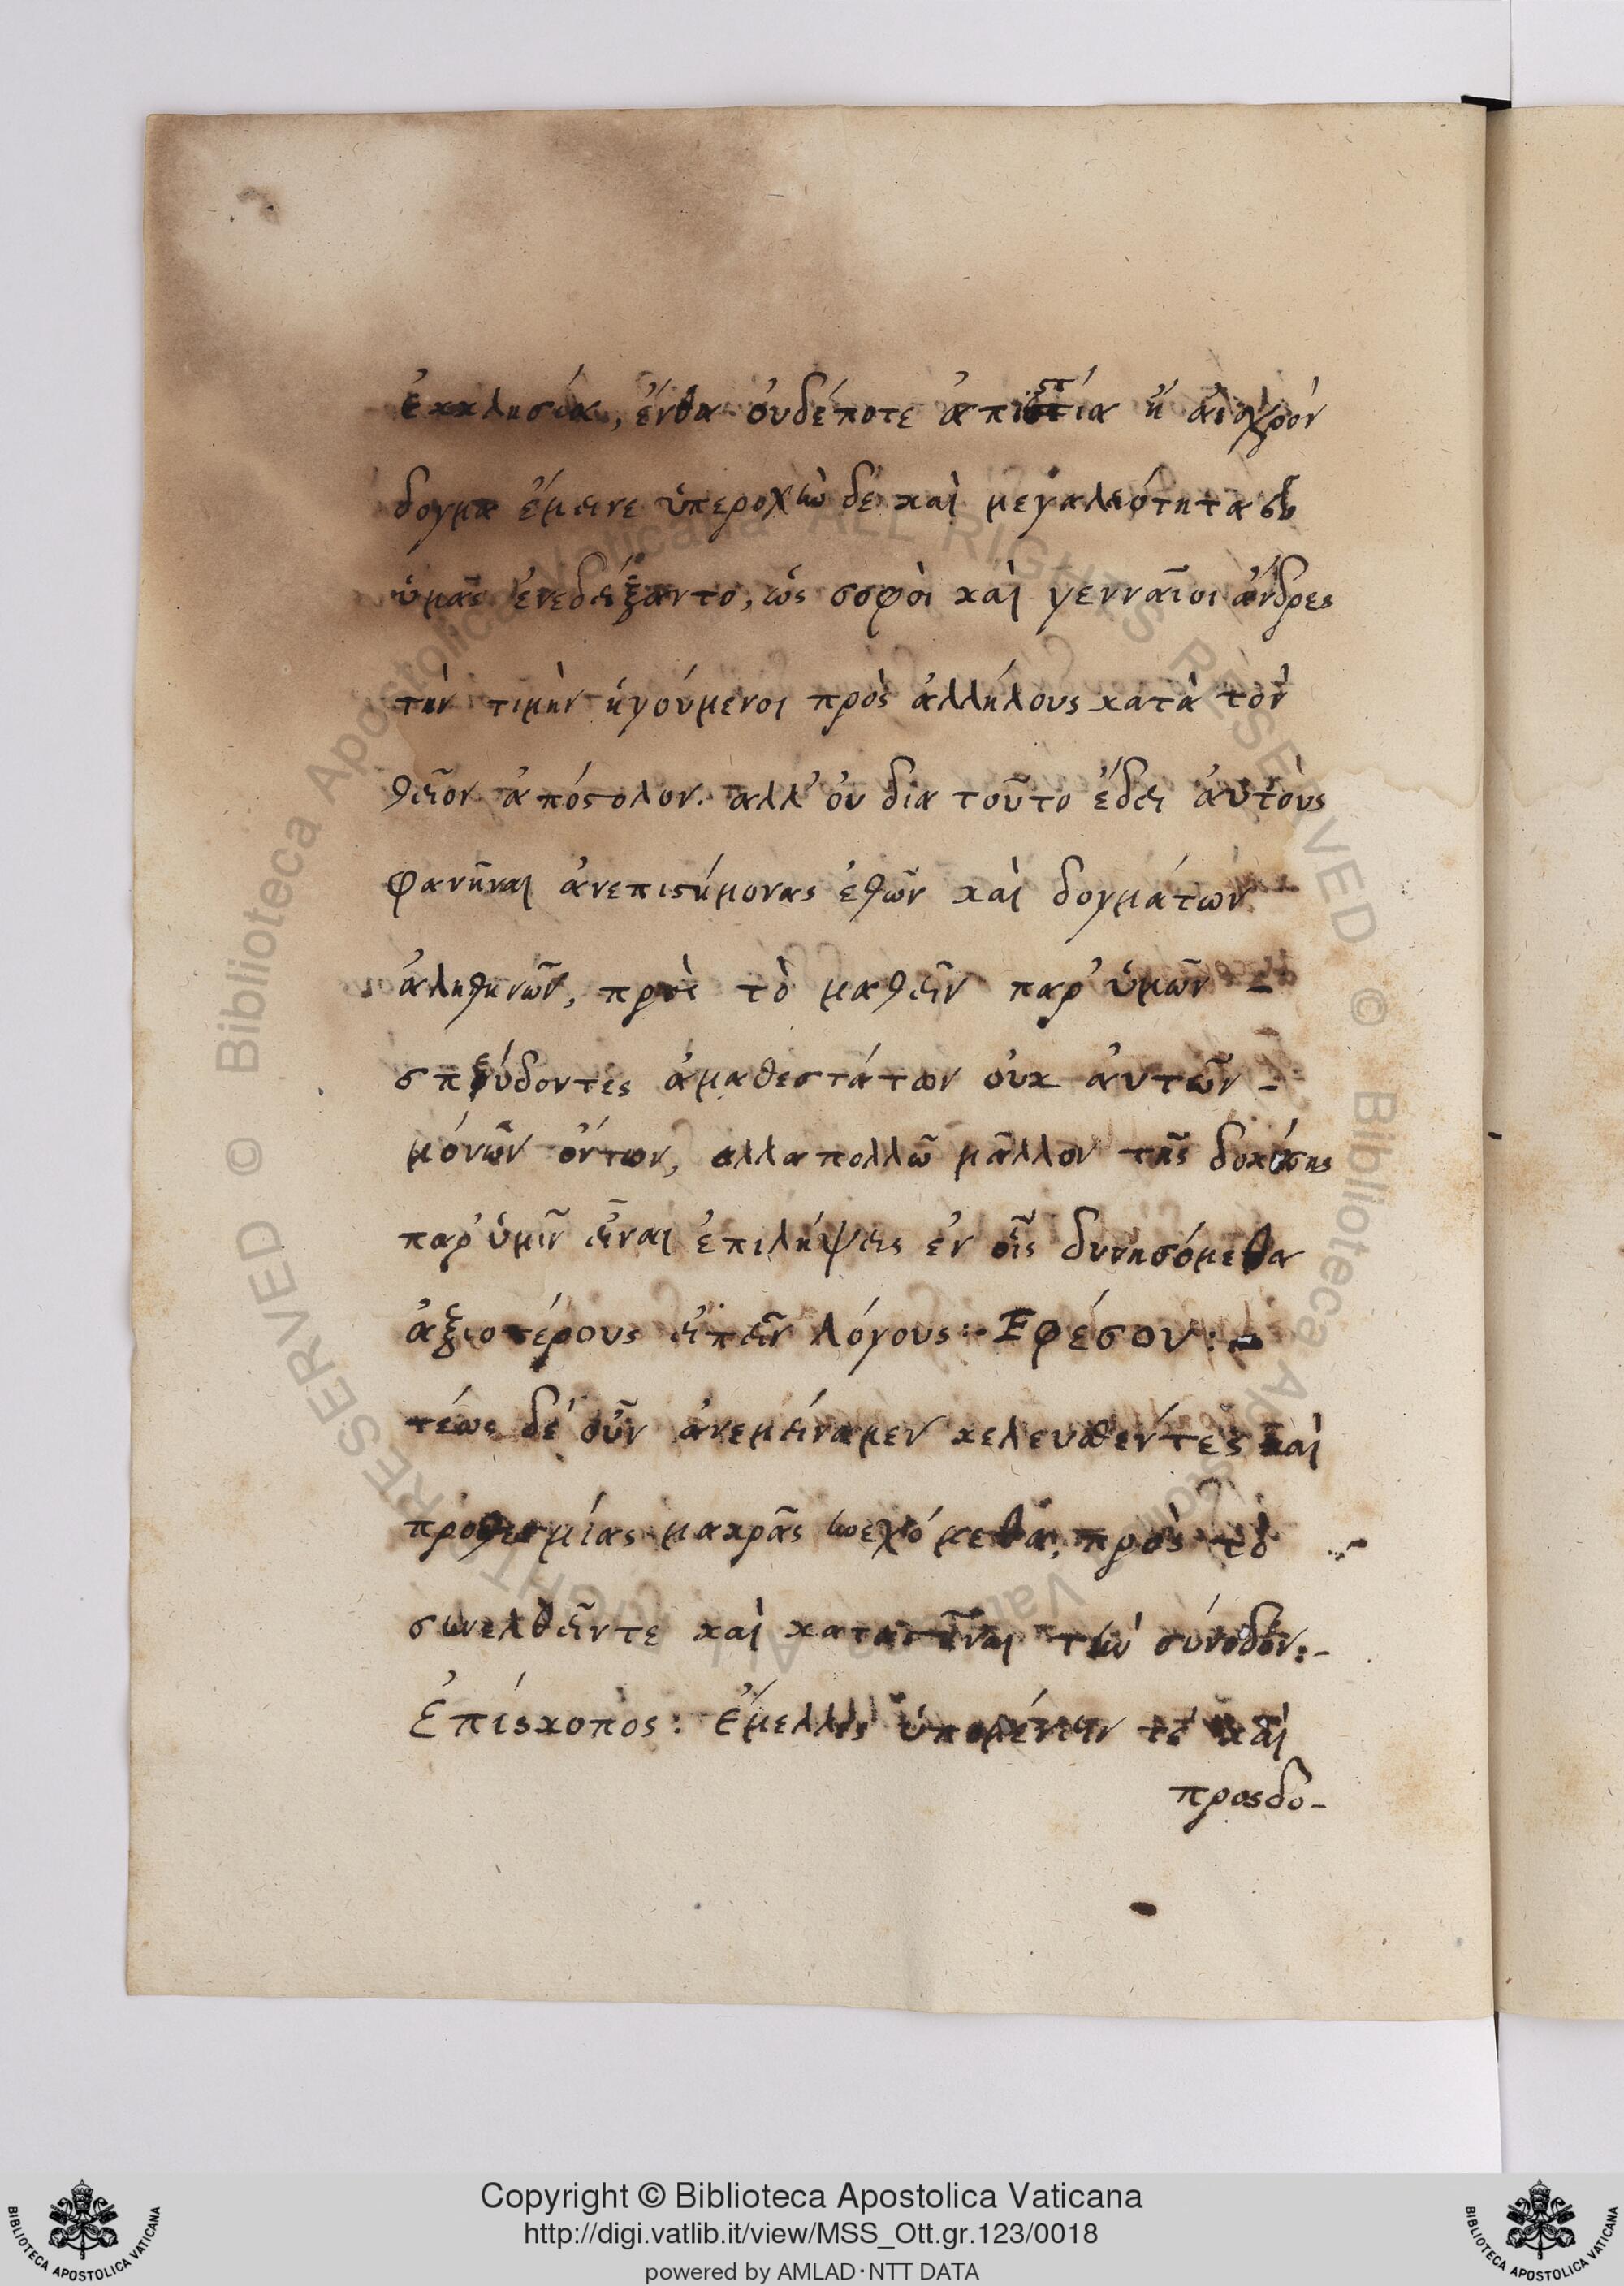 ἐκκλησία, ἔνθα οὐδέποτε ἀπιστία ἢ ἀισχρόν
δογμα ἔμεινε ὑπεροχὴν δὲ καὶ μεγαλειότητα
ὑμᾶς ἐνεδείξαντο, ὡς σοφοὶ καὶ γενναῖοι ἄνδρες
τὴν τιμὴν ἡγούμενοι πρὸς ἀλλήλους κατὰ τὸν
θεῖον ἀπόστολον. αλλ' ὀυ δια τοῦτο ἔδει ἀυτοὺς
φανῆναι ἀνεπιστήμονας ἐθῶν καὶ δογμάτων
ἀληθηνῶν, πρὸς τὸ μαθεῖν παρ' ὑμῶν -
σπεύδοντες ἀμαθεστάτων ὀυκ ἀυτῶν -
μόνῶν ὄντων, αλλα πολλῶ μᾶλλον τῆς δοκούσης
παρ' ὑμῖν εἶναι ἐπιλήψεις ἐν οἷς δυνησόμεθα
ἀξιοτέρους εἰπεῖν λόγους :· Εφέσου :-
τέως δὲ οὖν ἀνεμείναμεν κελευθέντες καὶ
προθεσμίας μακρᾶς πρὸς τὸ
συνελθεῖν τε καὶ καταστῆναι τὴν σύνοδον :-
ἐπίσκοπος : ἔμελλες ὑπομένειν τὲ καὶ
προσδο-
Copyright © Biblioteca Apostolica Vaticana
http://digi.vatlib.it/view/MSS_Ott.gr.123/0018
powered by AMLAD·NTT DATA
BIBLIOTECA APOSTOLICA VATICANA
BIBLIOTECA APOSTOLICA VATICANA
© Biblioteca Apostolica Vaticana ALL RIGHTS RESERVED © Biblioteca Apostolica Vaticana ALL RIGHTS RESERVED